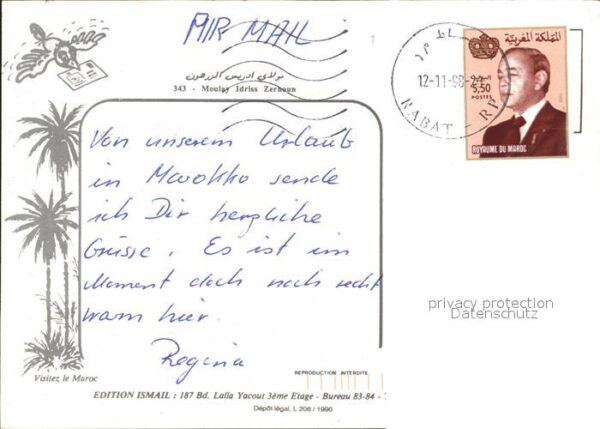 AIR MAIL
مولاي ادريس الزرهون
343 - Moulay Idriss Zerhoun
12-11-98
RABAT RP
المملكة المغربية
البريد
5,50
POSTES
ROYAUME DU MAROC
Von unserem Urlaub
in Marokko sende
ich Dir herzliche
Grüsse. Es ist im
Moment doch noch recht
warm hier.
Regina
privacy protection
Datenschutz
Visitez le Maroc
REPRODUCTION INTERDITE
EDITION ISMAIL : 187 Bd. Lalla Yacout 3ème Etage - Bureau 83-84 -
Dépôt légal, L 206 / 1990